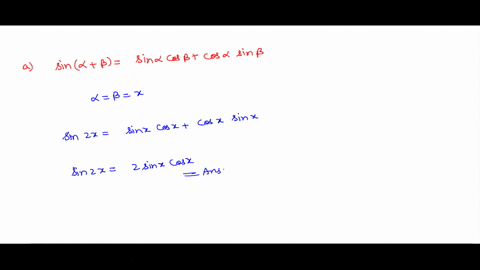 a) sin(α + β) = sinα cosβ + cosα sinβ
α = β = x
sin 2x = sinx cosx + cosx sinx
sin2x = 2 sinx cosx
Ans.